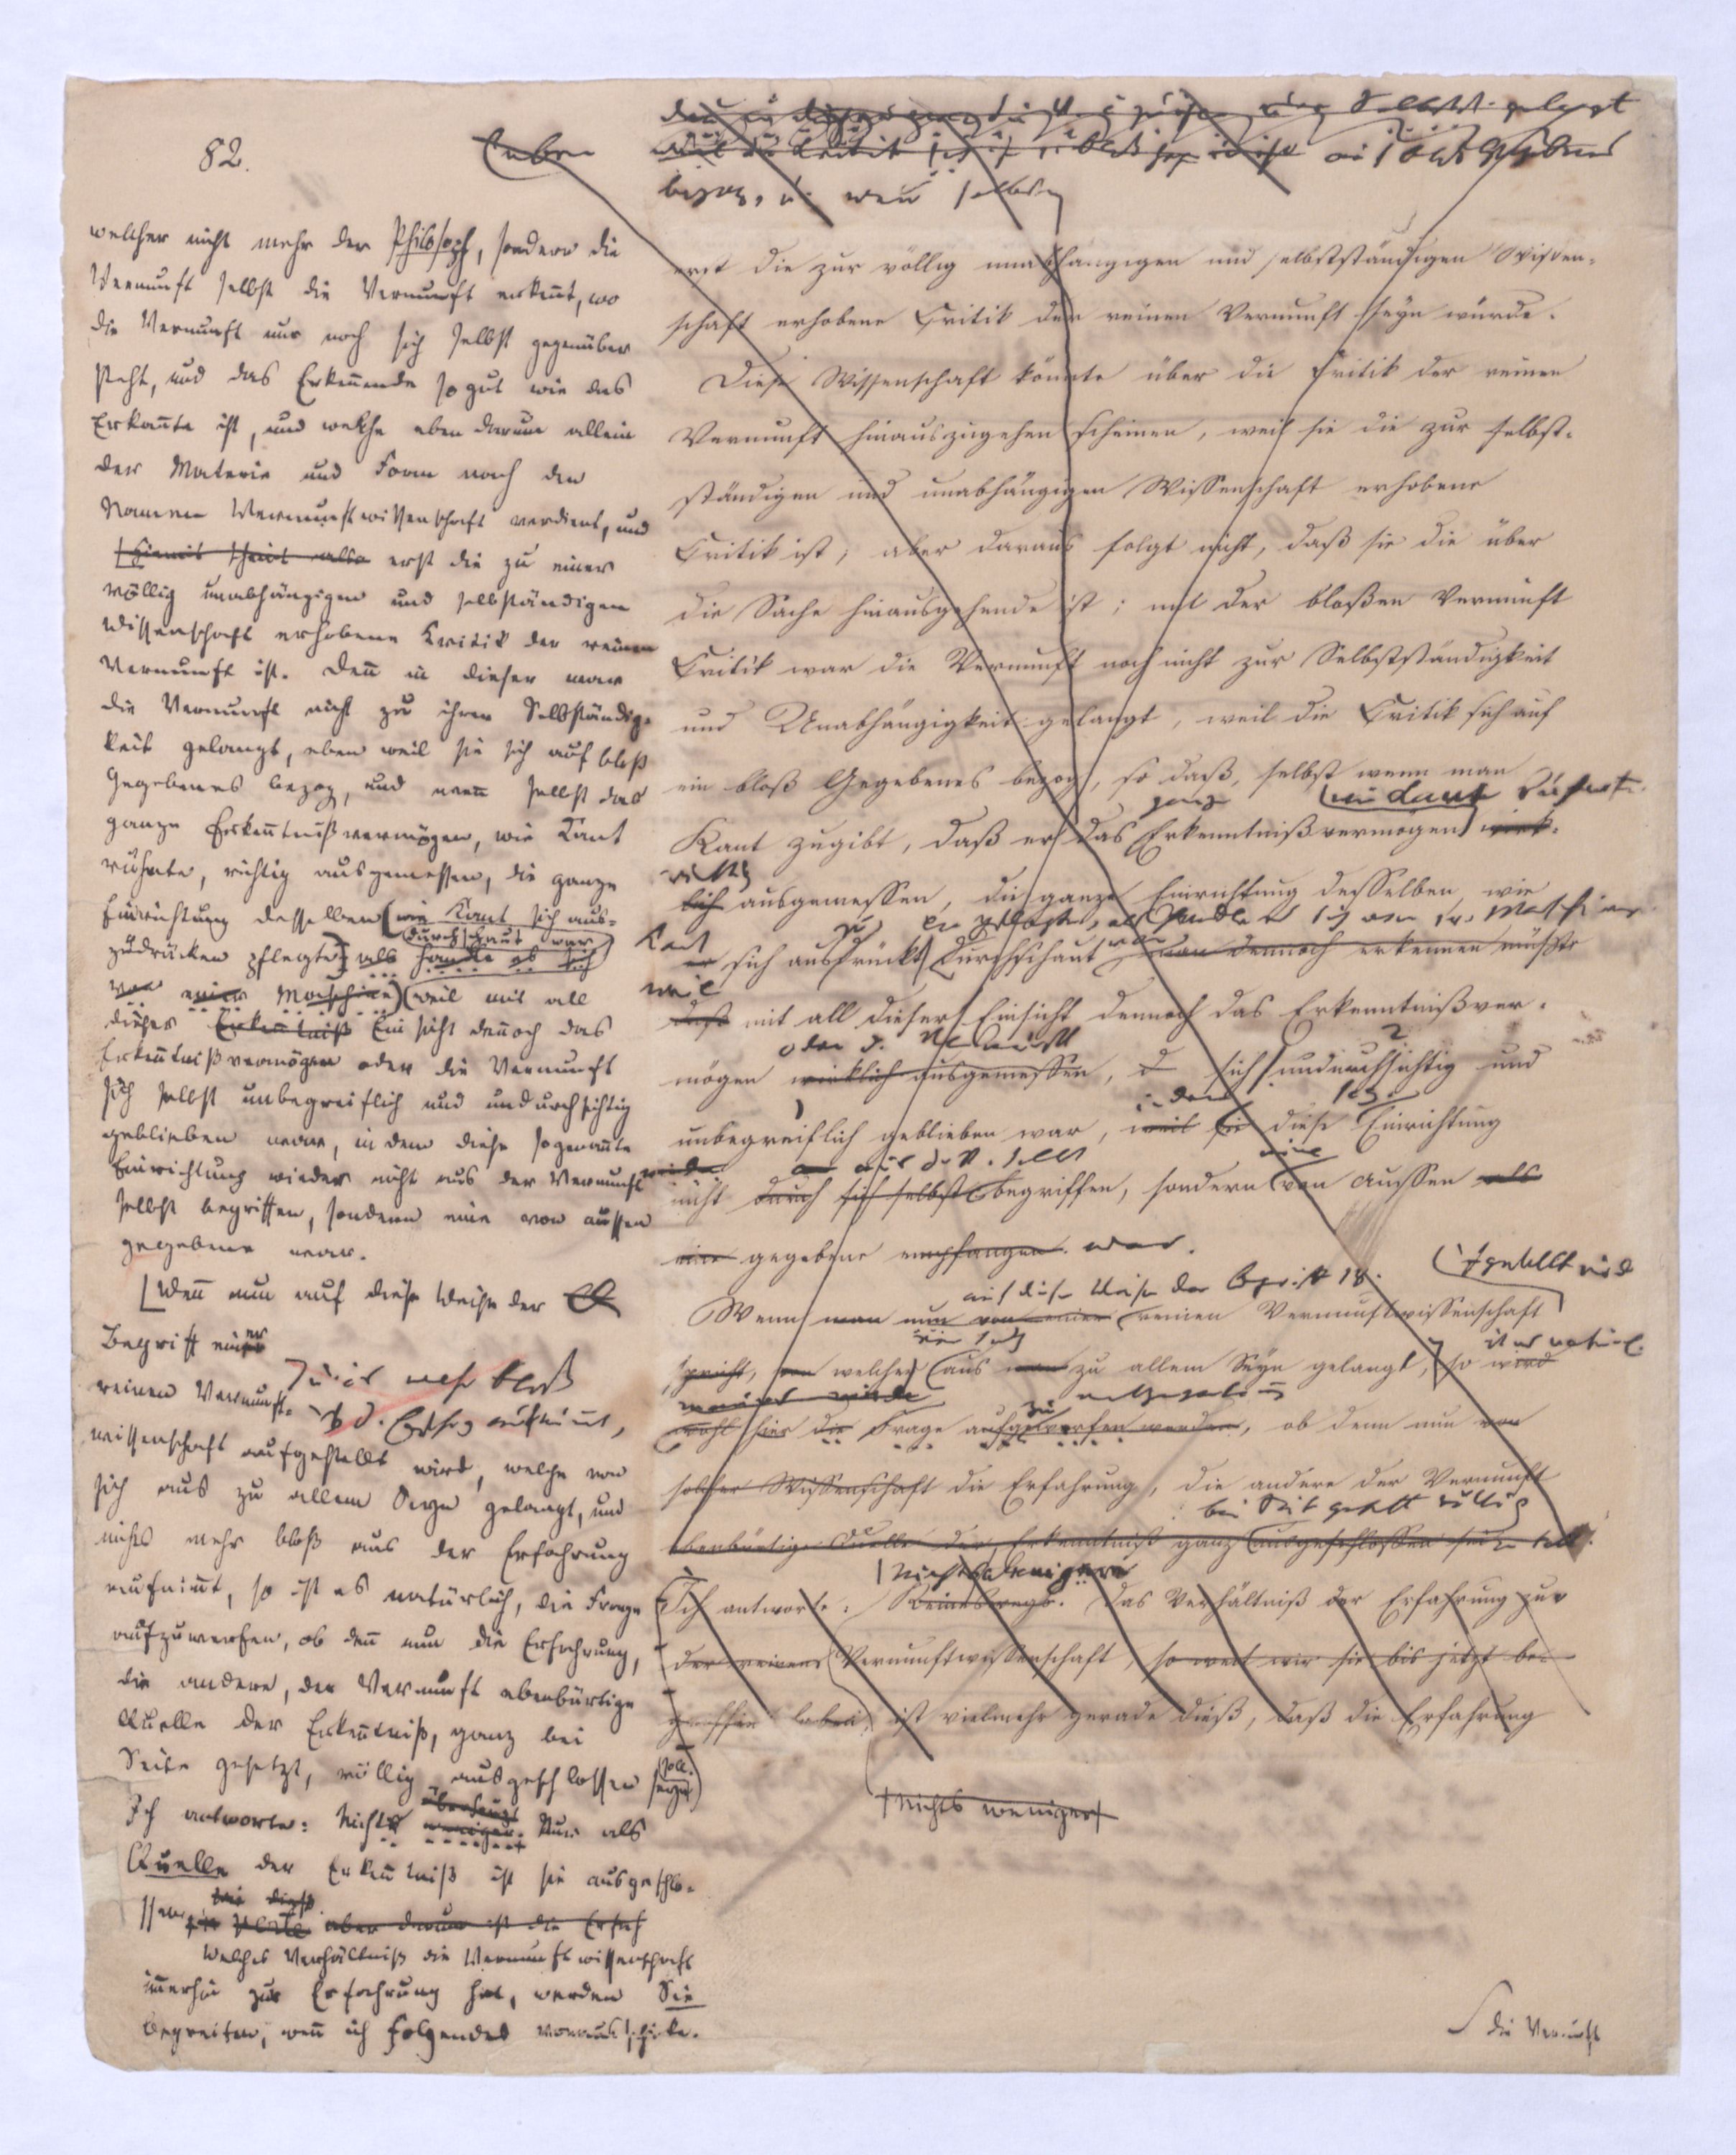 82.
welcher nicht mehr der Philosoph, sondern die
Vernunft selbst die Vernunft erkennt, wo
die Vernunft nur noch sich selbst gegenüber
steht, und das Erkennende so gut wie das
Erkañte ist, und welche eben darum allein
der Materie und Form nach den
Namen Vernunftwissenschaft verdient, und
erst die zu einer
völlig unabhängigen und selbständigen
Wissenschaft erhobene Kritik der reinen
Vernunft ist. Deñ in dieser war
die Vernunft nicht zu ihrer Selbständig-
keit gelangt, eben weil sie sich auf bloß
Gegebenes bezog, und weñ selbst das
ganze Erkeñtnißvermögen, wie Kant
rühmte, richtig ausgemessen, die ganze
Einrichtung desselben (wie Kant sich aus-
zudrücken pflegte) als hande es sich
durchschaut war
von einer Maschine) (weil mit all
dieser Erkeñtniß Einsicht deñoch das
Erkeñtnißvermögen oder die Vernunft
sich selbst unbegreiflich und undurchsichtig
geblieben war, in dem diese sogenañte
Einrichtung wieder nicht aus der Vernunft
selbst begriffen, sondern eine von aussen
gegebene war.
Weñ nun auf diese Weise der
Begriff einer
reinen Vernunft-
wissenschaft aufgestellt wird, welche von
sich aus zu allem Seyn gelangt, und
nichts mehr bloß aus der Erfahrung
aufnim̃t, so ist es natürlich, die Frage
aufzuwerfen, ob deñ nun die Erfahrung,
die andere, der Vernunft ebenbürtige
Quelle der Erkeñtniß, ganz bei
Seite gesetzt, völlig ausgeschlossen seyn soll.
Ich antworte: Nichts weniger. Nur als
überhaupt
Quelle der Erkeñtniß ist sie ausgeschlo-
ssen
aber darum ist die Erfah
Welches Verhältniß die Vernunftwissenschaft
im̃erhin zur Erfahrung hat, werden Sie
begreifen, weñ ich folgendes vorausschicke.
bezog, u. weñ selbst
erst die zur völlig unabhängigen und selbstständigen Wissen-
schaft erhobene Critik der reinen Vernunft seyn würde.
Diese Wissenschaft könnte über die Critik der reinen
Vernunft hinauszugehen scheinen, weil sie die zur selbst-
ständigen und unabhängigen Wissenschaft erhobene
Critik ist; aber daraus folgt nicht, daß sie die über
die Sache hinausgehende ist; mit der bloßen Vernunft
Critik war die Vernunft noch nicht zur Selbstständigkeit
und Unabhängigkeit gelangt, weil die Critik sich auf
ein bloß Gegebenes bezog, so daß, selbst wenn man
ganze
Kant zugibt, daß er das Erkenntnißvermögen wirk-
richtig
lich ausgemessen, die ganze Einrichtung desselben, wie
Kant
er sich ausdrückt durchschaut man dennoch erkennen müßte
weil
daß mit all dieser Einsicht dennoch das Erkenntnißver-
oder d. Vernunft
mögen wirklich ausgemessen, sich undurchsichtig und
unbegreiflich geblieben war, weil sie diese Einrichtung
aus d. V. selbst eine
nicht durch sich selbst begriffen, sondern von aussen als
eine gegebene empfangen war.
auf diese Weise der Begriff
Wenn man nun von einer reinen Vernunftwissenschaft
spricht, welche aus zu allem Seyn gelangt, so wird
wohl hier die Frage aufgeworfen werden, ob denn nun von
solcher Wissenschaft die Erfahrung, die andere der Vernunft
bei Seite gesetzt völlig
ebenbürtige Quelle der Erkenntniß ganz ausgeschlossen seyn soll.
Nichts weniger
Ich antworte: Keineswegs. Das Verhältniß der Erfahrung zur
der reinen Vernunftwissenschaft, so weit wir sie bis jetzt be-
griffen haben, ist vielmehr gerade dieß, daß die Erfahrung
Nichts weniger
die Vernunft